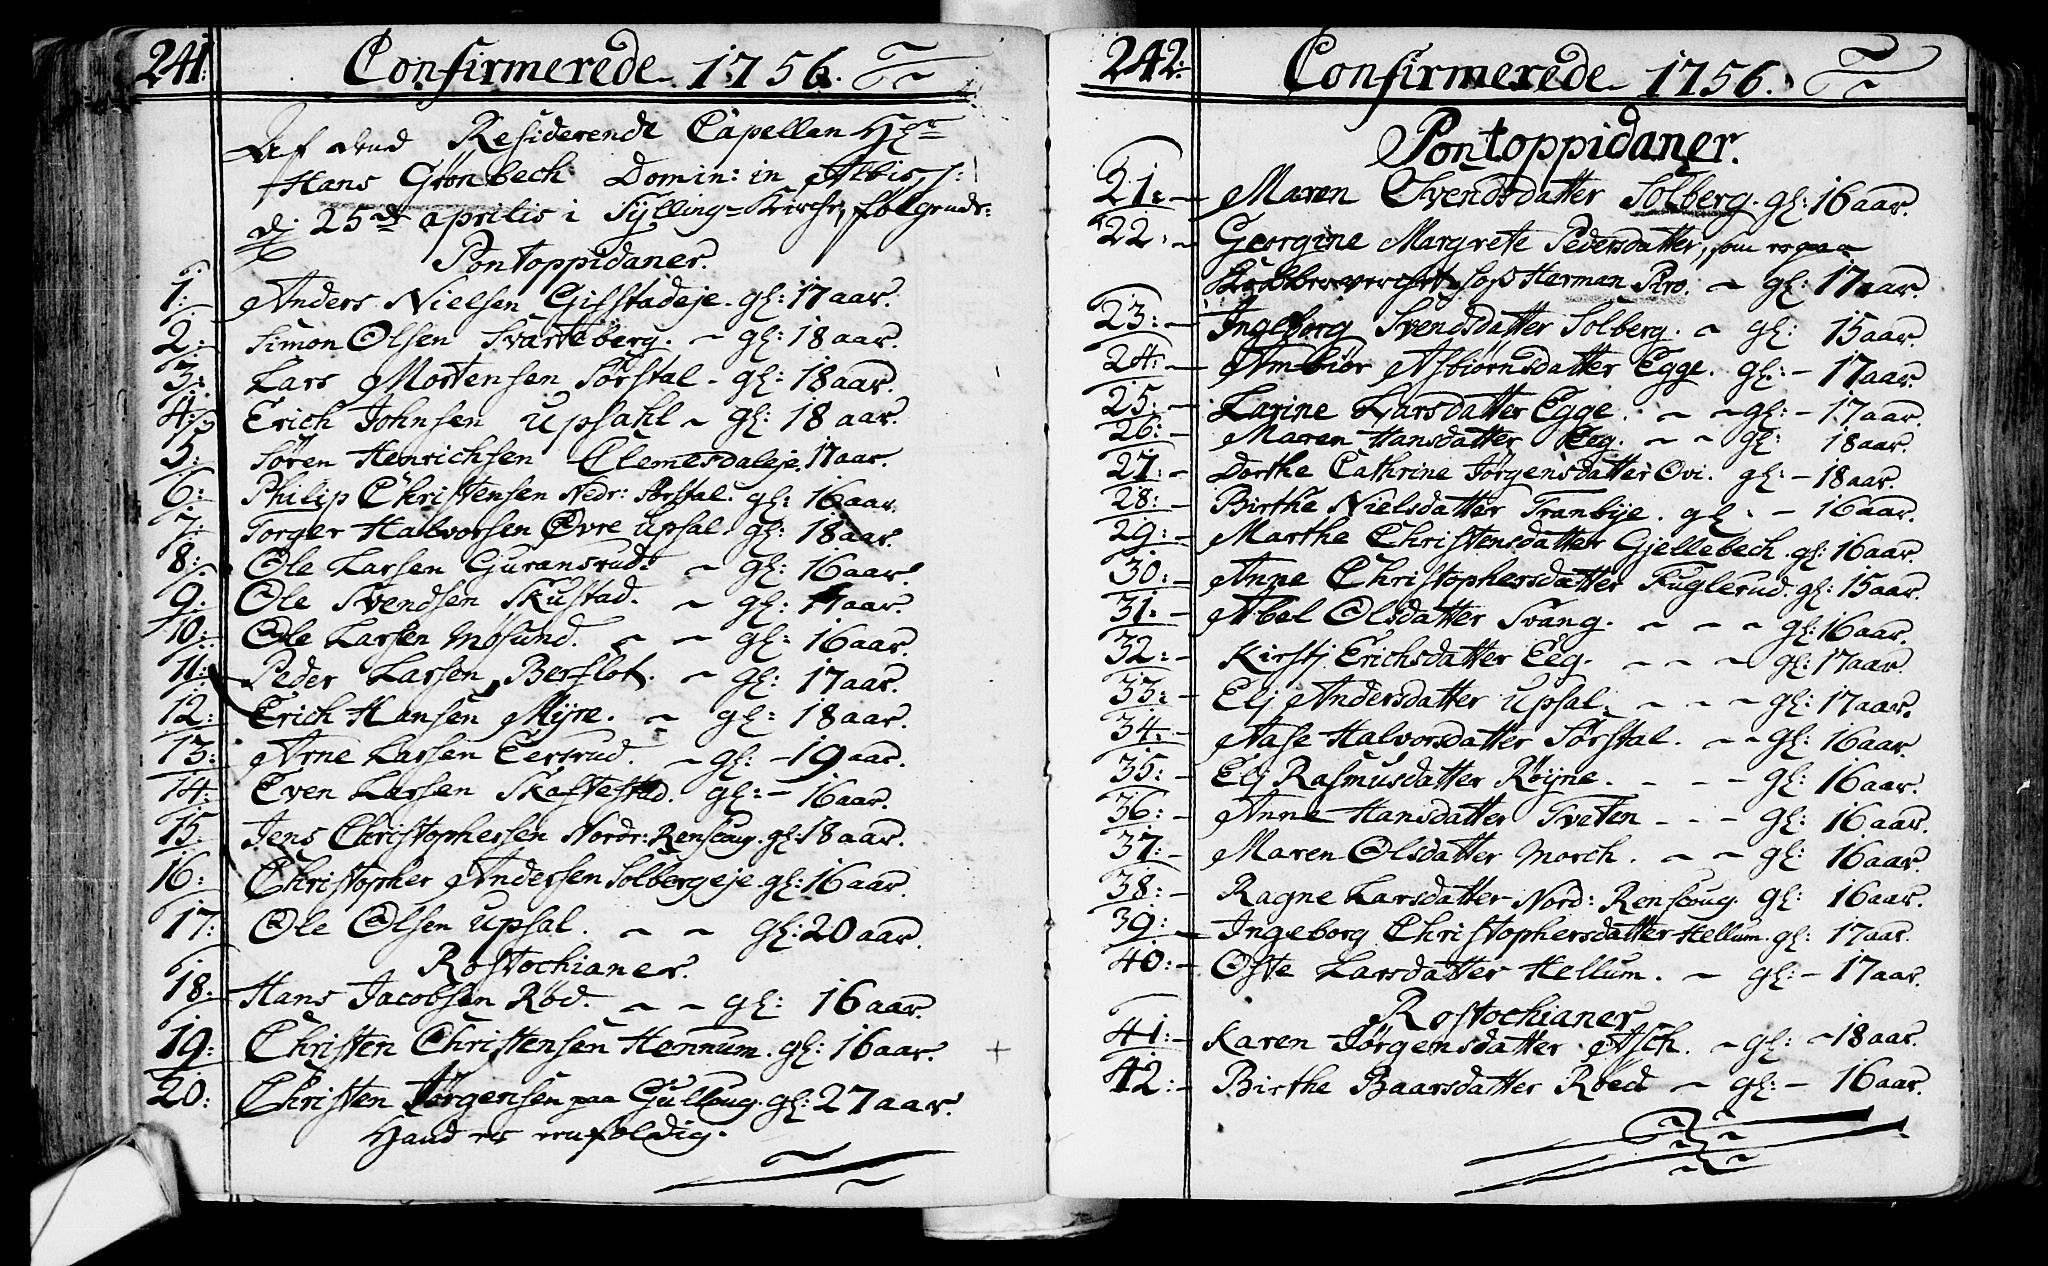 241:
Confirmerede 1756.
Af dend Residerende Capellan Hr
Hans Grönbech Domin: in Albis, s:
d. 25de aprilis i Sylling-Kirche, følgende:
Pontoppidaner.
1: Anders Nielsen Gifstadeje. gl: 17 aar.
2: Simon Olsen Svarteberg. gl: 18 aar.
3: Lars Mortensen Sørstal. gl: 18 aar.
4: Erich Johnsen Upsahl gl: 18 aar.
5: Søren Henrichsen Clemesdaleje, 17 aar.
6: Philip Christensen Nedr: Sørstal. gl: 16 aar
7: Torger Halvorsen Øvre Upsal. gl: 18 aar.
8: Ole Larsen Guransrud. gl: 16 aar.
9: Ole Svendsen Skustad. gl: 17 aar.
10: Ole Larsen Møsund. gl: 16 aar.
11: Peder Larsen Berflot. gl: 17 aar.
12: Erich Hansen Myre. gl: 18 aar.
13: Arne Larsen Eersrud. gl: 19 aar.
14: Even Larsen Skastestad. gl: 16 aar.
15. Jens Christophersen Nordr: Renscoug. gl: 18 aar.
16: Christopher Andersen Solbergeje. gl: 16 aar.
17: Ole Olsen Upsal. gl: 20 aar.
Rostochianer.
18: Hans Jacobsen Rød. gl: 16 aar.
19: Christen Christensen Hennum. gl: 16 aar. +
20: Christen Jørgensen paa Gulloug. gl: 27 aar.
Hand er eenfoldig.
242:
Confirmerede 1756.
Pontoppidaner.
21: Maren Svendsdatter Solberg. gl: 16 aar.
22: Georgine Margrete Pedersdatter, som er paa
hos Herman Piro. gl: 17 aar.
23: Ingeborg Svendsdatter Solberg. gl: 15 aar.
24: Ambiør Asbiørnsdatter Egge. gl: 17 aar.
25: Karine Larsdatter Egge. gl: 17 aar.
26: Maren Hansdatter Eeg. gl: 18 aar.
27: Dorthe Cathrine Jørgensdatter Ovi. gl: 18 aar.
28: Birthe Nielsdatter Tranbye. gl: 16 aar.
29: Marthe Christensdatter Gjellebech. gl: 16 aar.
30: Anne Christophersdatter Fuglerud. gl: 15 aar.
31: Abel Olsdatter Svang. gl: 16 aar.
32: Kirstj Erichsdatter Eeg. gl: 17 aar.
33: Elj Andersdatter Upsal. gl: 17 aar.
34: Aase Halvorsdatter Sørstal. gl: 16 aar.
35: Elj Rasmusdatter Røyne. gl: 16 aar.
36: Anne Hansdatter Tveten gl: 16 aar.
37: Maren Olsdatter Morch. gl: 16 aar.
38: Ragne Larsdatter Nord: Renscoug. gl: 16 aar.
39: Ingeborg Christophersdatter Hellum. gl: 17 aar.
40: Oste Larsdatter Hellum. gl: 17 aar.
Rostochianer
41: Karen Jørgensdatter Asch. gl: 18 aar.
42: Birthe Baarsdatter Roed gl: 16 aar.